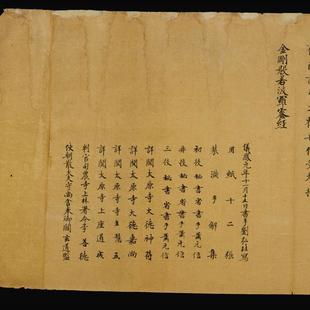 金剛般若波羅蜜經
儀鳳元年十一月十五日書手劉弘珪寫
用紙十二張
裝潢手解集
初校秘書省書手蕭元信
再校秘書省書手蕭元信
三校秘書省書手蕭元信
詳閱太原寺大德神苻
詳閱太原寺大德嘉尚
詳閱太原寺寺主慧立
詳閱太原寺上座道成
判官司農寺上林署令李善德
使朝散大夫守尚舍奉御閻玄道監